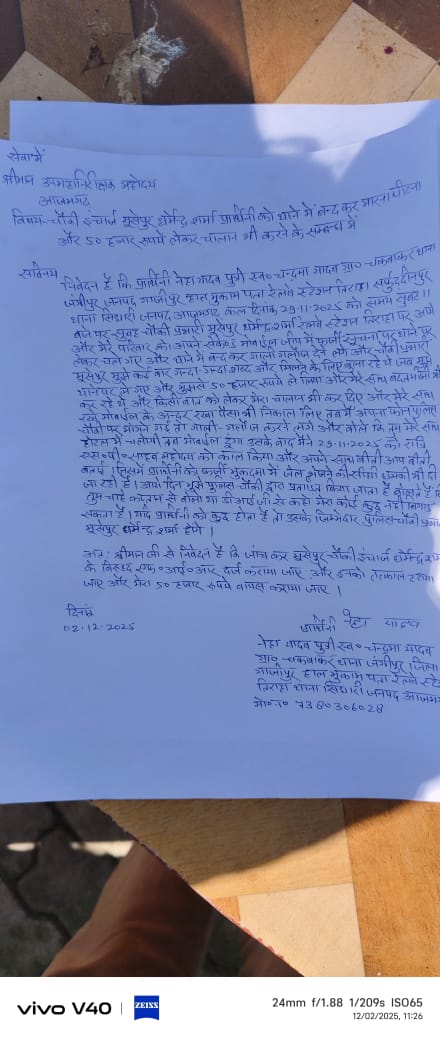 सेवा में
श्रीमान उपमहानिरीक्षक महोदय
आजमगढ़
विषय-चौकी इंचार्ज मूसेपुर धर्मेन्द्र शर्मा प्रार्थिनी को थाने में बन्द कर मारना पीटना
और 50 हजार रुपये लेकर चालान भी करने के सम्बन्ध में
सविनय
निवेदन है कि प्रार्थिनी नेहा यादव पुत्री स्व० चन्द्रमा यादव ग्रा० चकवाकर थाना
जंगीपुर जनपद गाजीपुर हाल मुकाम पता रेलवे स्टेशन तिराहा सर्फुद्दीनपुर
थाना सिधारी जनपद आजमगढ़ कल दिनांक 29.11.2025 को समय सुबह 11
बजे पर मूसेपुर चौकी प्रभारी मूसेपुर धर्मेन्द्र शर्मा रेलवे स्टेशन तिराहा पर आये
और मेरे परिवार को अपने सेकेण्ड मोबाईल जीप में फर्जी सूचना पर थाने पर
लेकर चले गए और थाने में बन्द कर गाली गलौज देने लगे और चौकी प्रभारी
मूसेपुर मुझे कई बार गन्दा-गन्दा शब्द और मिलने के लिए बुला रहे थे जब मुझे
थाने पर ले गए और मुझसे 50 हजार रुपये ले लिया और मेरे साथ बदतमीजी भी
कर रहे थे और किसी बात को लेकर मेरा चालान भी कर दिए और मेरे साथ
रखे मोबाईल के अन्दर रखा पैसा भी निकाल लिए जब मैं अपना फोन पुलिस
चौकी पर मांगने गई तो गाली-गलौज करने लगे और बोले कि तुम मेरे साथ
होटल में चलोगी तब मोबाईल दूंगा उसके बाद मैंने 29-11-2025 को रात्रि
एस०पी० साहब महोदय को काल किया और अपने साथ बीती आप बीती
बताई। जिसमें प्रार्थिनी को फर्जी मुकदमा में जेल भेजने की सीधी धमकी भी दी
जा रही है। आये दिन मुझे पुलिस चौकी द्वारा प्रताड़ित किया जाता है कहते हैं कि
तुम चाहे कप्तान से बोलो या डीआई जी से कहो मेरा कोई कुछ नहीं बिगाड़
सकता है। यदि प्रार्थिनी को कुछ होता है तो उसके जिम्मेदार पुलिस चौकी प्रभारी
मूसेपुर धर्मेन्द्र शर्मा होंगे।
अतः श्रीमान जी से निवेदन है कि जांच कर मूसेपुर चौकी इंचार्ज धर्मेन्द्र शर्मा
के विरुद्ध एफ०आई०आर दर्ज कराया जाए और इनको तत्काल हटाया
जाए और मेरा 50 हजार रुपये वापस कराया जाए।
दिनांक
02.12.2025
प्रार्थिनी नेहा यादव
नेहा यादव पुत्री स्व० चन्द्रमा यादव
ग्रा० चकवाकर थाना जंगीपुर जिला
गाजीपुर हाल मुकाम पता रेलवे स्टे
तिराहा थाना सिधारी जनपद आजमग
मो०न० 7380306028
vivo V40 | ZEISS
24mm f/1.88 1/209s ISO65
12/02/2025, 11:26